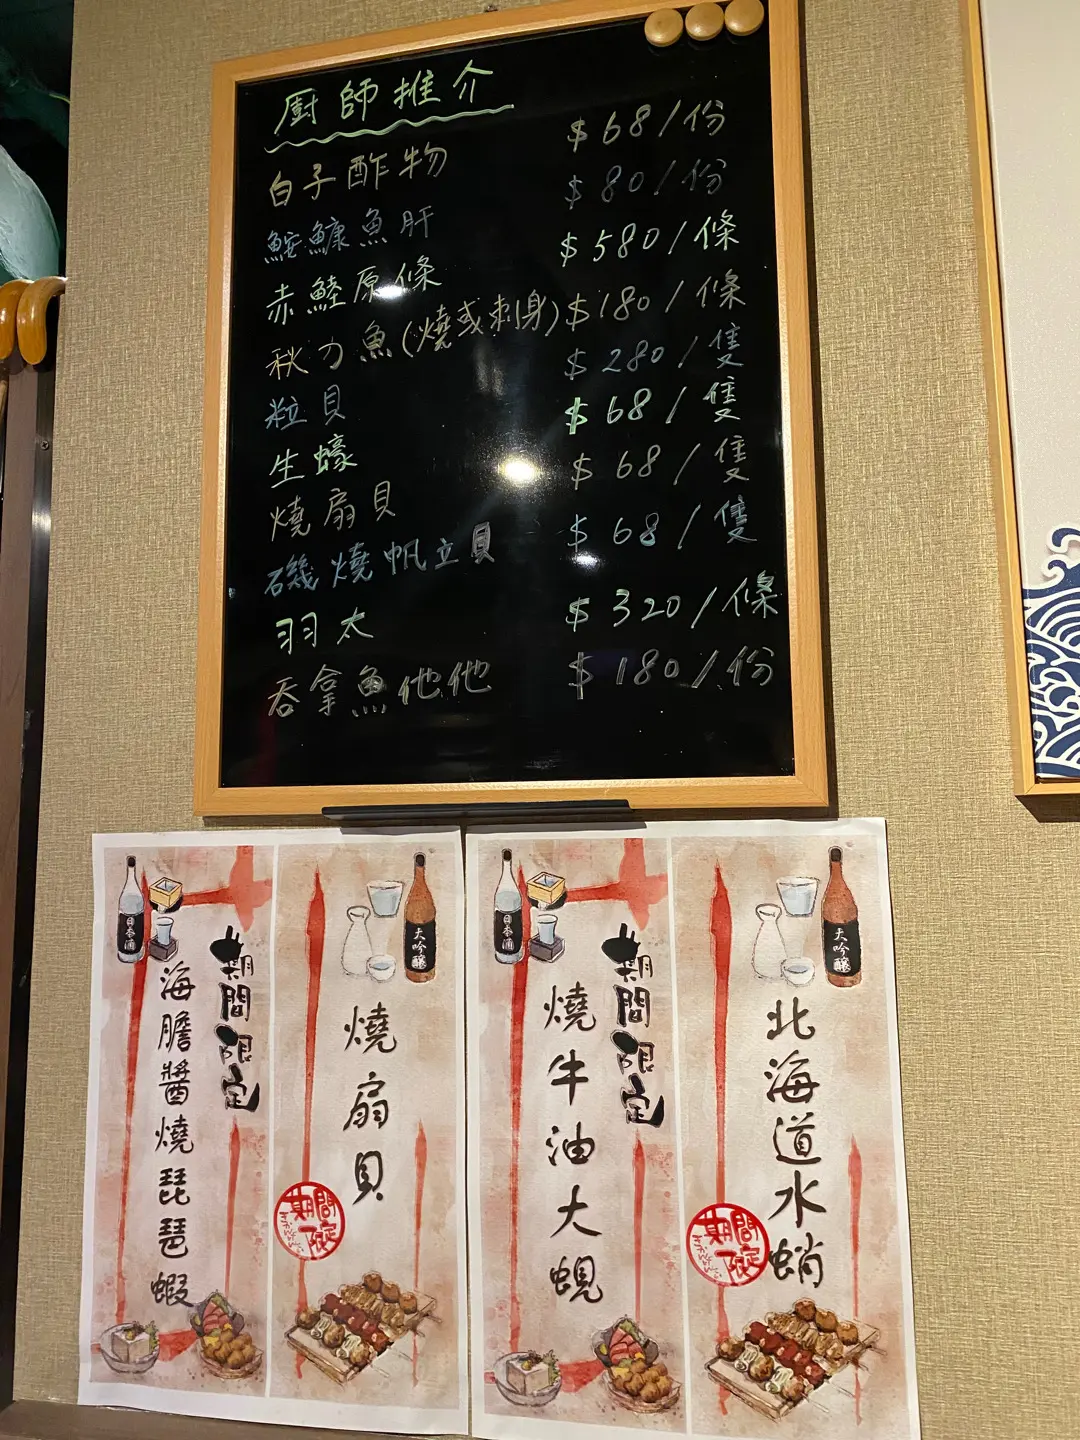 廚師推介
白子酢物 $68/份
鮟鱇魚肝 $80/份
赤鯥原條 $580/條
秋刀魚(燒或刺身) $180/條
粒貝 $280/隻
生蠔 $68/隻
燒扇貝 $68/隻
磯燒帆立貝 $68/隻
羽太 $320/條
吞拿魚他他 $180/份
日本酒
期間限定
海膽醬燒琵琶蝦
大吟醸
燒扇貝
期間限定
日本酒
期間限定
燒牛油大蜆
大吟醸
北海道水蛸
期間限定